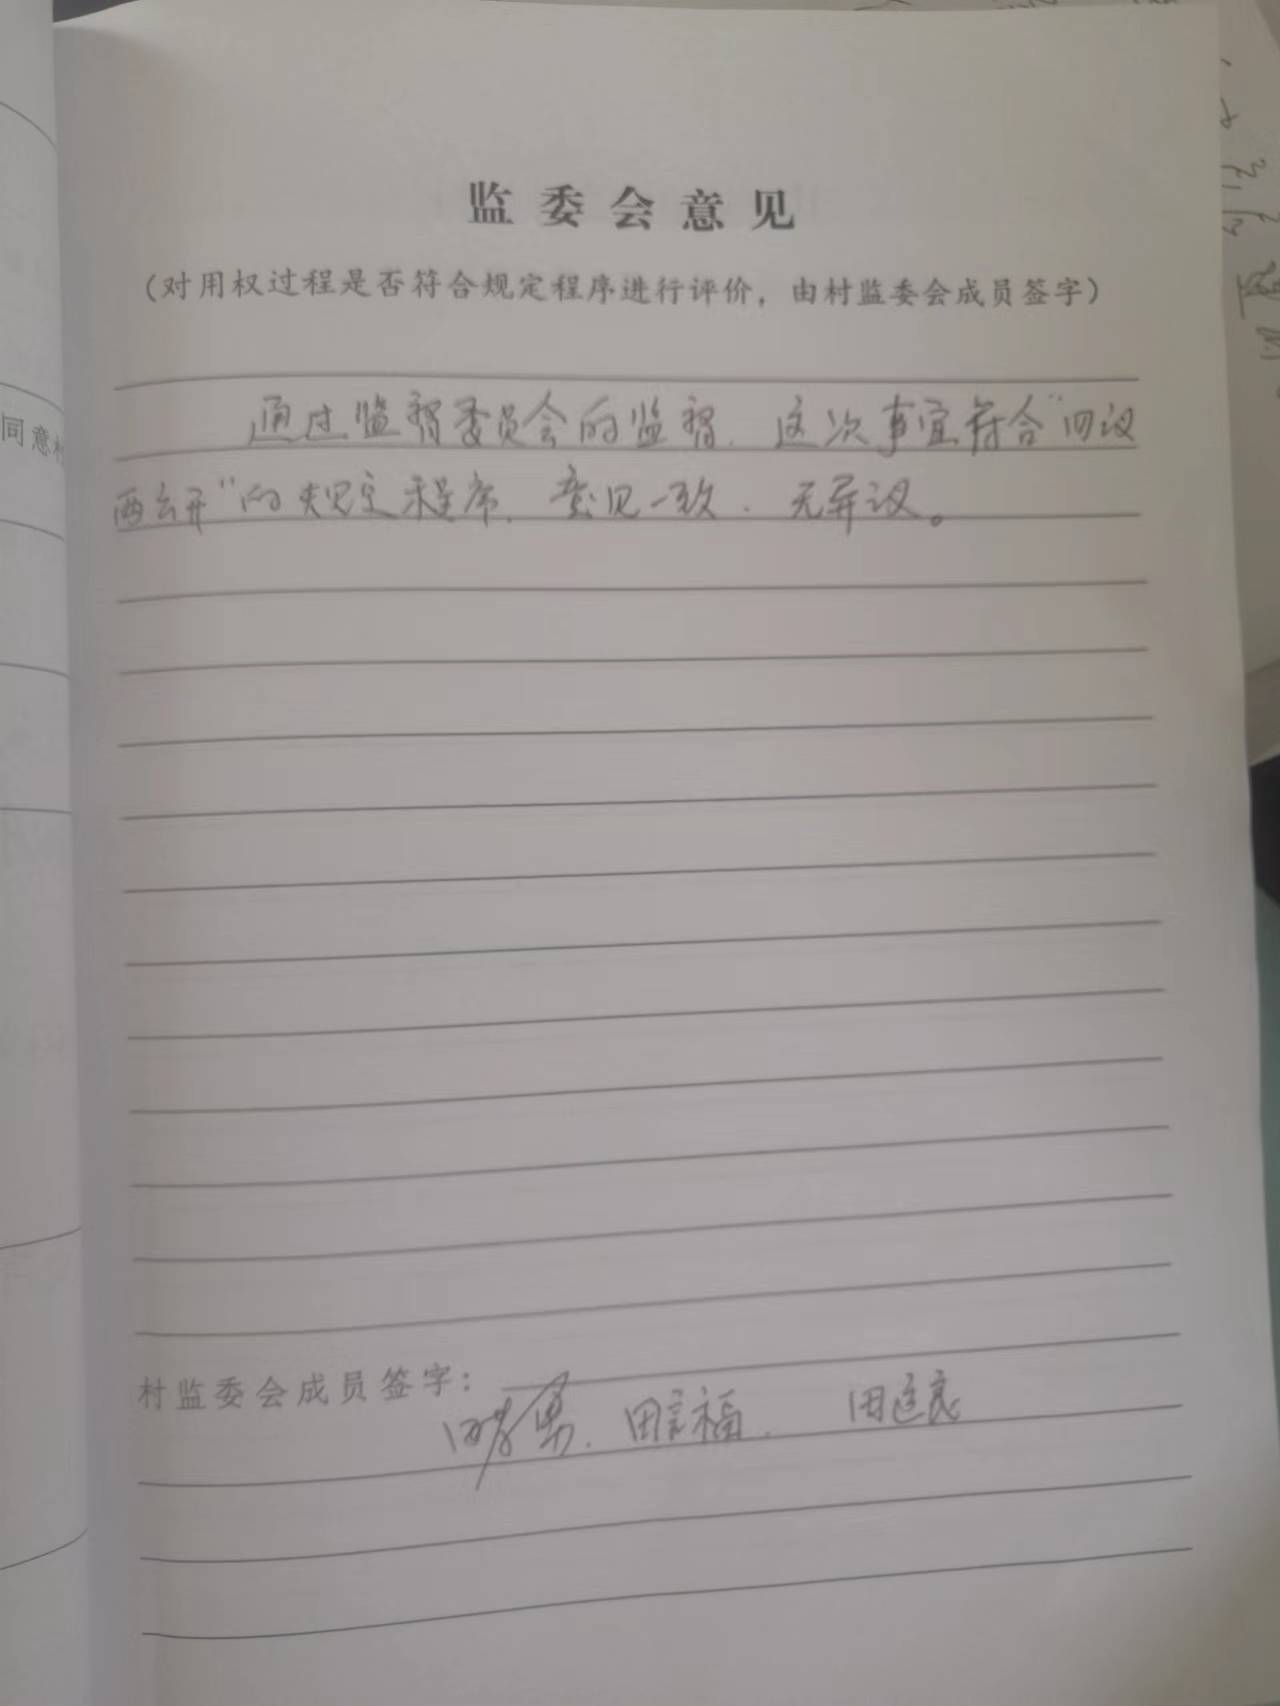 监委会意见
（对用权过程是否符合规定程序进行评价，由村监委会成员签字）
同意村
通过监督委员会的监督．这次事宜符合“四议
两公开”的规定程序．意见一致．无异议。
村监委会成员签字：
田孝勇．田言福．田廷良